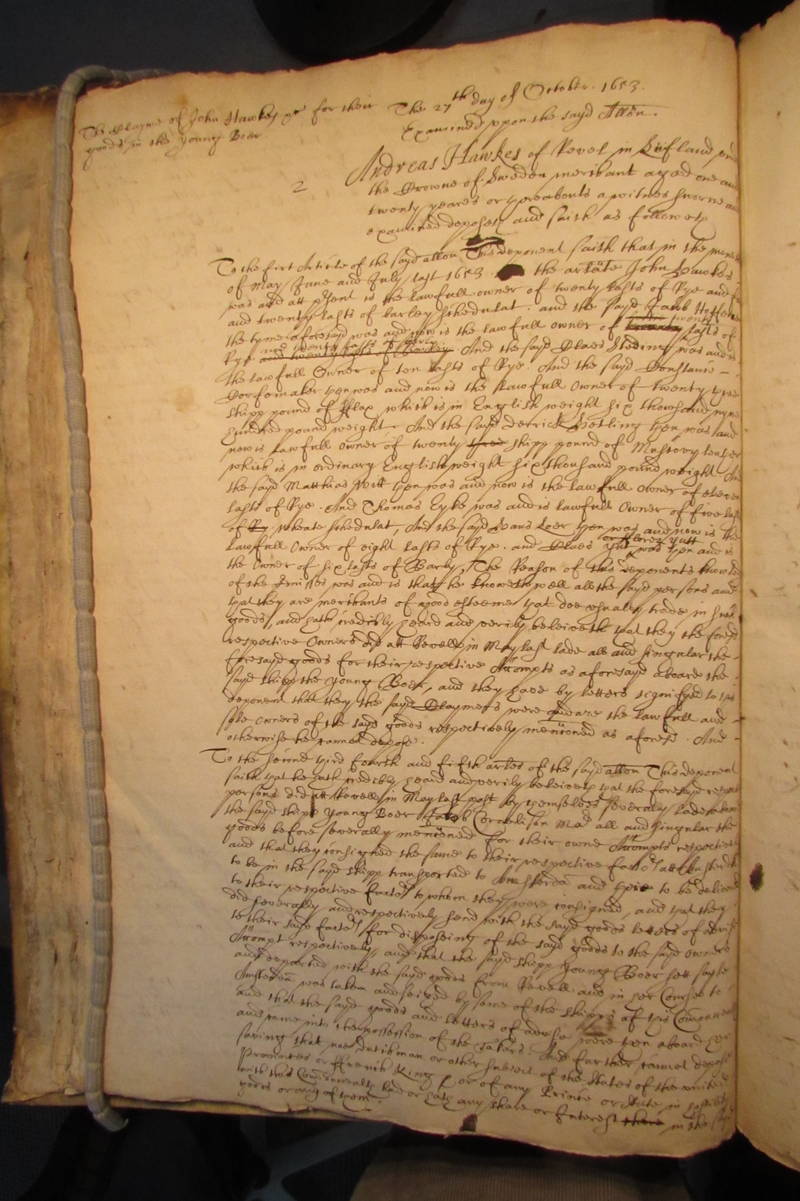 The Clayme of John Hawkes &c for their
goods in the Young Boer
The 27th day of October. 1653.
Examined upon the sayd Allon.
2
Andreas Hawkes of Revel in Liefland
the Crowne of Sweden merchant aged one and
twenty yeares or thereabouts a witnes sworne and
examined deposeth and saith as followeth
To the first Article of the sayd allon This deponent saith that in the moneths
of May June and July last 1653. the arlate John Hawkes
was and att present is the lawfull owner of twenty lasts of Rye and
and twenty lasts of barley schedulat. and the sayd Jacob
the tyme aforesayd was and now is the lawfull owner of twenty lasts of
Rye and twenty lasts of Barley. And the sayd Claes was and is
the lawfull Owner of ten lasts of Rye. And the sayd Constans
then was and now is the lawfull Owner of twenty three
shipp pound of fflax which is in English weight six thousand nyne
hundred pound weight. And the sayd Derrick then was and
now is lawfull owner of twenty three shipp pound of Muscovy
which is in ordinary English weight six thousand pound weight
the sayd Matthias Witt then was and now is the lawfull Owner of eleven
lasts of Rye. And Thomas Eyke was and is lawfull Owner of five lasts
of Rye wheate schedulat, And the sayd Hans Loer then was and now is the
lawfull Owner of eight lasts of Rye. and Claes was then and is
the Owner of six lasts of Barly, The Reason of this deponents knowledge
of the premisses was and is that he knoweth well all the sayd persons and
that they are merchants of good esteeme that doe usually trade in such
goods, and hath credibly heard and verily beleiveth that they the foresd
respective Owners did att Revell in May last lade all and singular the
foresayd goods for their respective Accompts as aforesayd aboard the
sayd shipp the Young Boer, and they have by letters signifyed to this
deponent that they the sayd Claymers were and are the lawfull and
sole owners of the sayd goods respectively mentioned as aforesd. And
otherwise he cannot depose.
To the second third fourth and fifth arles of the sayd allon This deponent
saith that he hath credibly heard and verily beleiveth that the foresayd
persons did att Revell in May last past by themselves severally lade aboard
the sayd shipp Young Boer Jacob Cornelison Mr all and singular the
goods before severally mentioned for their owne Accompts respectively
and that they consigned the same to their respective factors att Amsterdam
to be in the sayd shipp transported to Amsterdam and there to be delivered
to their respective factors to whom they were consigned, and that they
did severally and respectively send with the sayd goods letters of advise
to their sayd factors for disposeing of the sayd goods to the sayd owners
Accompt respectively, and that the sayd shipp Young Boer sett sayle
and departed with the sayd goods from Revell and in her Course to
Amsterdam was taken and seized by some of the shipps of this Comonwealth
and that the sayd goods and letters of advise were then aboard her
and came into the possession of the takers. And further cannot depose
saving that noe dutchman or other subject of the States of the united
Provinces or ffrench King or of any Prince or State in hostility
with this Comonwealth had or hath any share or Interest there in the sayd
goods or any of them.